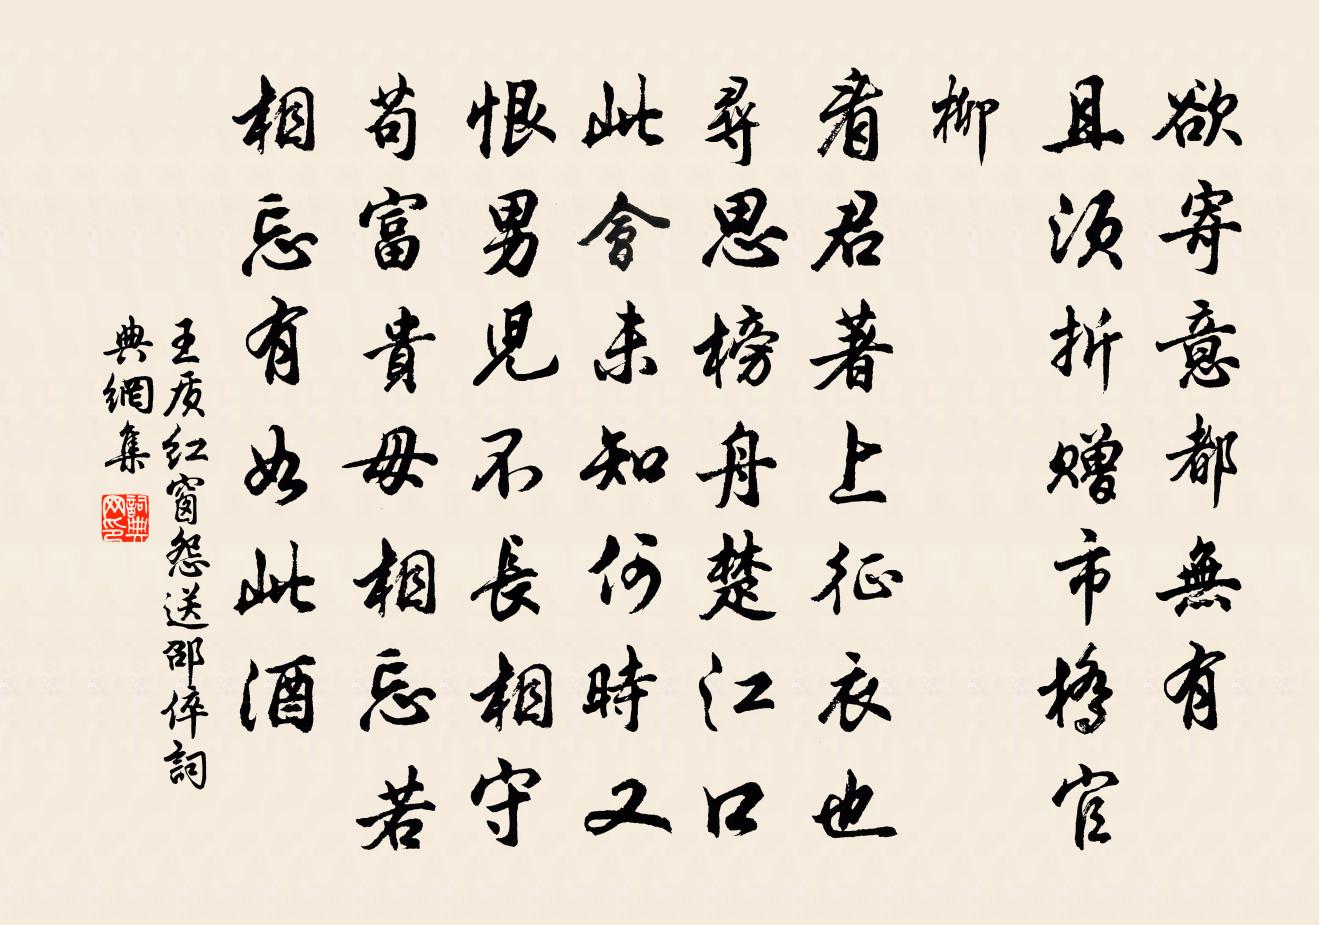 欲寄意都無有
且須折贈市橋官
柳
看君著上征衣也
尋思榜舟楚江口
此會未知何時又
恨男兒不長相守
苟富貴毋相忘若
相忘有如此酒
王质红窗怨送邵倅詞
典網集
詞典
网印